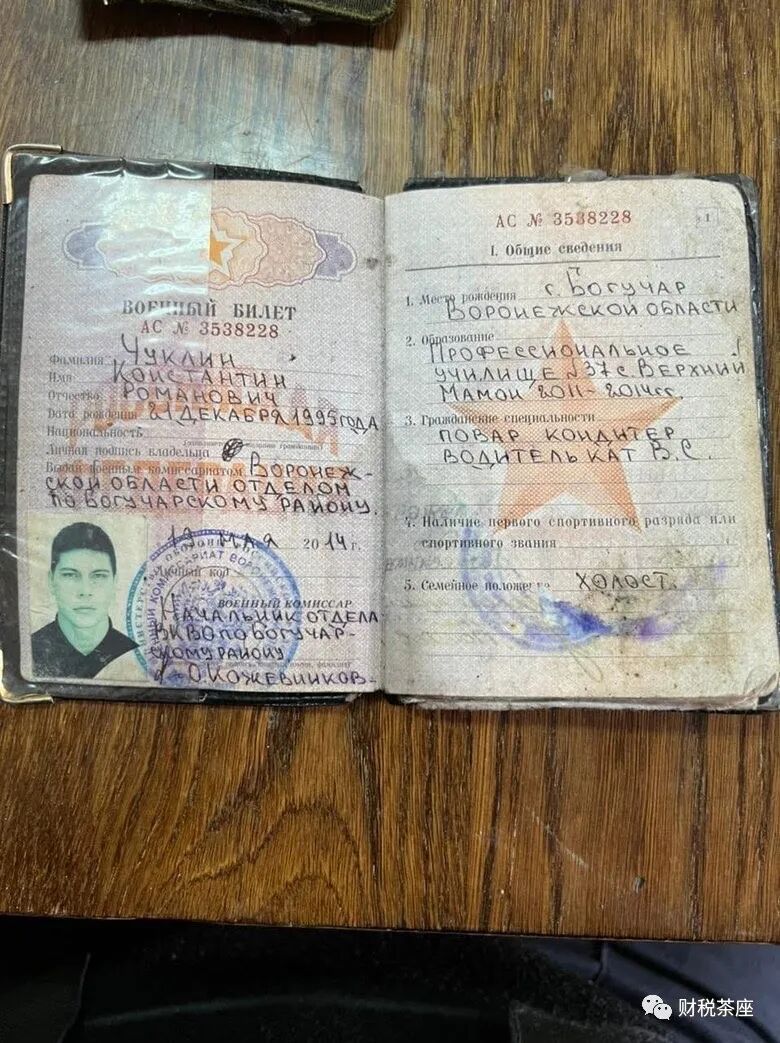 ВОЕННЫЙ БИЛЕТ
АС № 3538228
Фамилия ЧУКЛИН
Имя КОНСТАНТИН
Отчество РОМАНОВИЧ
Дата рождения 21 ДЕКАБРЯ 1995 ГОДА
Национальность
Личная подпись владельца
Выдан военным комиссариатом ВОРОНЕЖ-
СКОЙ ОБЛАСТИ ОТДЕЛОМ
ПО БОГУЧАРСКОМУ РАЙОНУ.
МАЯ 2014 г.
Личный код
ВОЕННЫЙ КОМИССАР
НАЧАЛЬНИК ОТДЕЛА
ВКВО ПО БОГУЧАР-
СКОМУ РАЙОНУ
О. КОЖЕВНИКОВ
АС № 3538228
1
I. Общие сведения
1. Место рождения г. БОГУЧАР
ВОРОНЕЖСКОЙ ОБЛАСТИ
2. Образование
ПРОФЕССИОНАЛЬНОЕ
УЧИЛИЩЕ №37 с. ВЕРХНИЙ
МАМОН 2011-2014гг.
3. Гражданские специальности
ПОВАР КОНДИТЕР
ВОДИТЕЛЬ КАТ В.С.
4. Наличие первого спортивного разряда или
спортивного звания
5. Семейное положение ХОЛОСТ
财税茶座